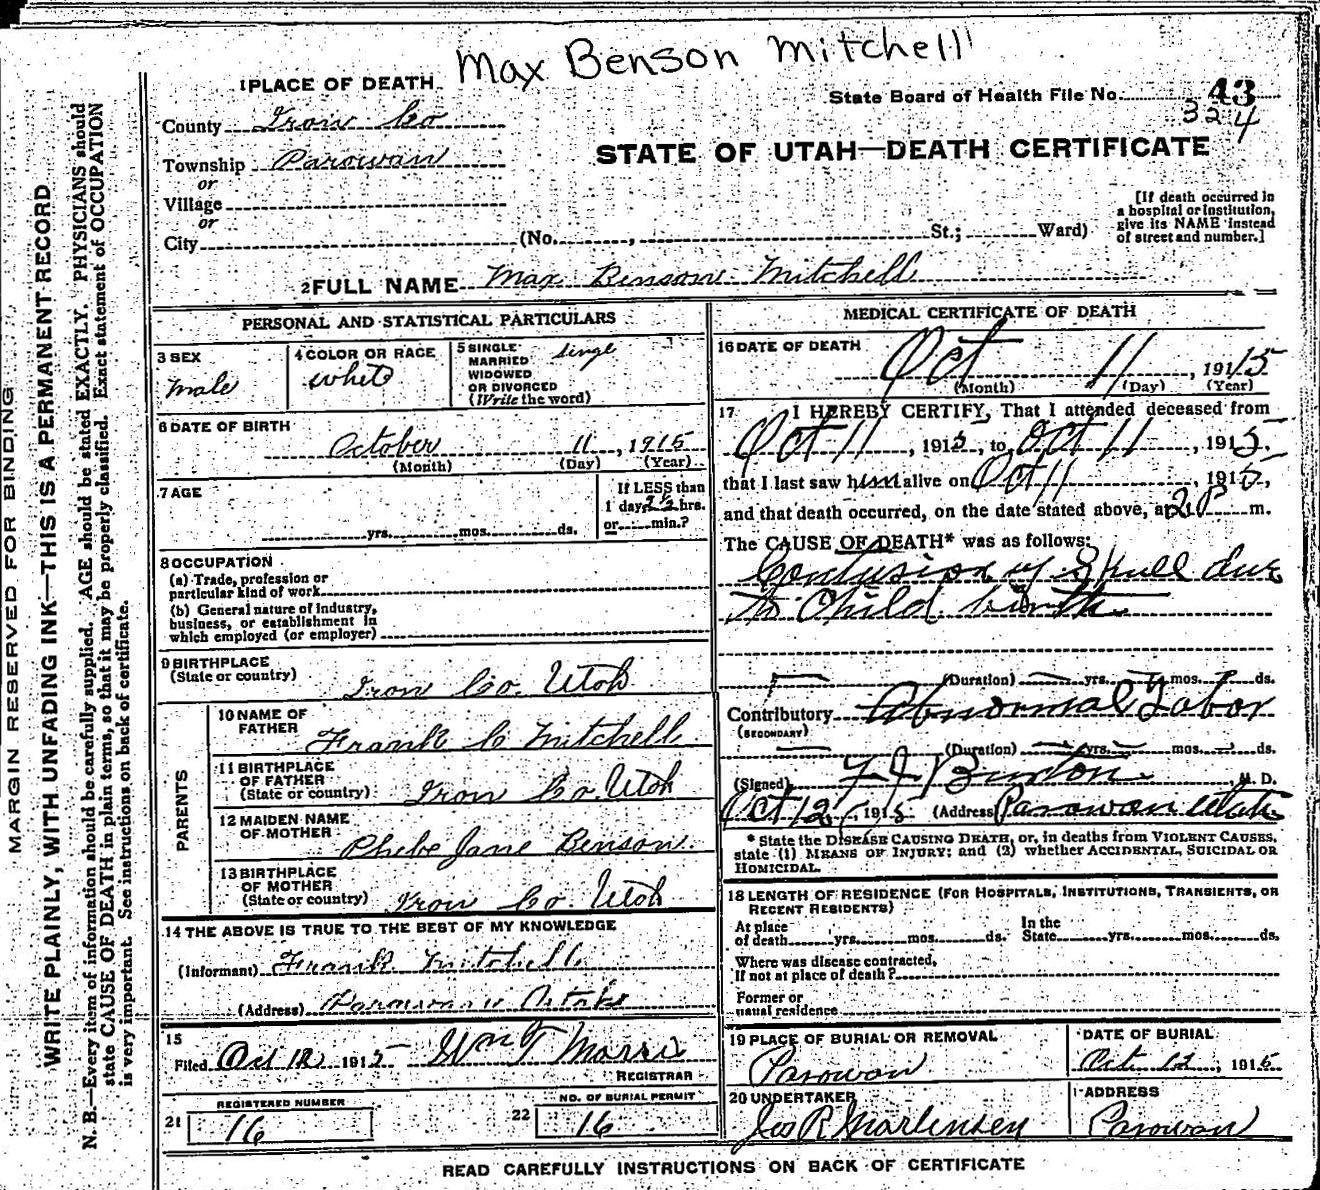 Max Benson Mitchell
1 PLACE OF DEATH
State Board of Health File No. 43
324
County Iron Co
STATE OF UTAH—DEATH CERTIFICATE
Township Parowan
or
Village
or
City (No. , St.; Ward)
[If death occurred in
a hospital or institution,
give its NAME instead
of street and number.]
2 FULL NAME Max Benson Mitchell
PERSONAL AND STATISTICAL PARTICULARS
3 SEX
male
4 COLOR OR RACE
white
5 SINGLE
MARRIED
WIDOWED
OR DIVORCED
(Write the word)
single
6 DATE OF BIRTH
October 11, 1915
(Month) (Day) (Year)
7 AGE
yrs. mos. ds.
If LESS than
1 day, 2 1/2 hrs.
or min.?
8 OCCUPATION
(a) Trade, profession or
particular kind of work
(b) General nature of industry,
business, or establishment in
which employed (or employer)
9 BIRTHPLACE
(State or country)
Iron Co. Utah
PARENTS
10 NAME OF
FATHER
Frank C Mitchell
11 BIRTHPLACE
OF FATHER
(State or country)
Iron Co. Utah
12 MAIDEN NAME
OF MOTHER
Phebe Jane Benson
13 BIRTHPLACE
OF MOTHER
(State or country)
Iron Co Utah
14 THE ABOVE IS TRUE TO THE BEST OF MY KNOWLEDGE
(Informant) Frank Mitchell
(Address) Parowan Utah
15
Filed Oct 12 1915 Wm T Morris
REGISTRAR
21 REGISTERED NUMBER
16
22 NO. OF BURIAL PERMIT
16
MEDICAL CERTIFICATE OF DEATH
16 DATE OF DEATH
Oct 11, 1915
(Month) (Day) (Year)
17 I HEREBY CERTIFY, That I attended deceased from
Oct 11, 1915, to Oct 11, 1915,
that I last saw him alive on Oct 11, 1915,
and that death occurred, on the date stated above, at 2 P m.
The CAUSE OF DEATH* was as follows:
Contusion of Skull due
to Child birth
(Duration) yrs. mos. ds.
Contributory Abnormal Labor
(SECONDARY)
(Duration) yrs. mos. ds.
(Signed) Burton, M. D.
Oct 12, 1915 (Address) Parowan Utah
* State the DISEASE CAUSING DEATH, or, in deaths from VIOLENT CAUSES,
state (1) MEANS OF INJURY; and (2) whether ACCIDENTAL, SUICIDAL OR
HOMICIDAL.
18 LENGTH OF RESIDENCE (FOR HOSPITALS, INSTITUTIONS, TRANSIENTS, OR
RECENT RESIDENTS)
At place
of death yrs. mos. ds.
In the
State yrs. mos. ds.
Where was disease contracted,
If not at place of death?
Former or
usual residence
19 PLACE OF BURIAL OR REMOVAL
Parowan
DATE OF BURIAL
Oct. 12, 1915
20 UNDERTAKER
Jos R Mortensen
ADDRESS
Parowan
READ CAREFULLY INSTRUCTIONS ON BACK OF CERTIFICATE
MARGIN RESERVED FOR BINDING
WRITE PLAINLY, WITH UNFADING INK—THIS IS A PERMANENT RECORD
N. B.—Every item of information should be carefully supplied. AGE should be stated EXACTLY. PHYSICIANS should
state CAUSE OF DEATH in plain terms, so that it may be properly classified. Exact statement of OCCUPATION
is very important. See instructions on back of certificate.